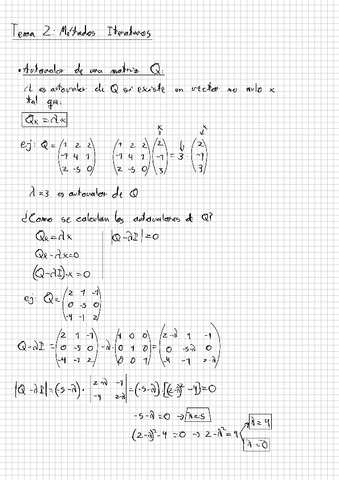 Tema 2: Métodos Iterativos
• Autovalor de una matriz Q:
λ es autovalor de Q si existe un vector no nulo x
tal que:
Qx = λx
ej: Q = (1 2 2; -1 4 1; 2 -5 0) (1 2 2; -1 4 1; 2 -5 0) (2; -1; 3) = 3 · (2; -1; 3)
λ = 3 es autovalor de Q
¿Como se calculan los autovalores de Q?
Qx = λx |Q - λI| = 0
Qx - λx = 0
(Q - λI) · x = 0
ej: Q = (2 1 -1; 0 -5 0; -4 -1 2)
Q - λI = (2 1 -1; 0 -5 0; -4 -1 2) - λ · (1 0 0; 0 1 0; 0 0 1) = (2-λ 1 -1; 0 -5-λ 0; -4 -1 2-λ)
|Q - λI| = (-5-λ) · |2-λ -1; -4 2-λ| = (-5-λ) · [(2-λ)² - 4] = 0
-5-λ = 0 → λ=-5
(2-λ)² - 4 = 0 → 2-λ² = 4 λ=4
λ=0